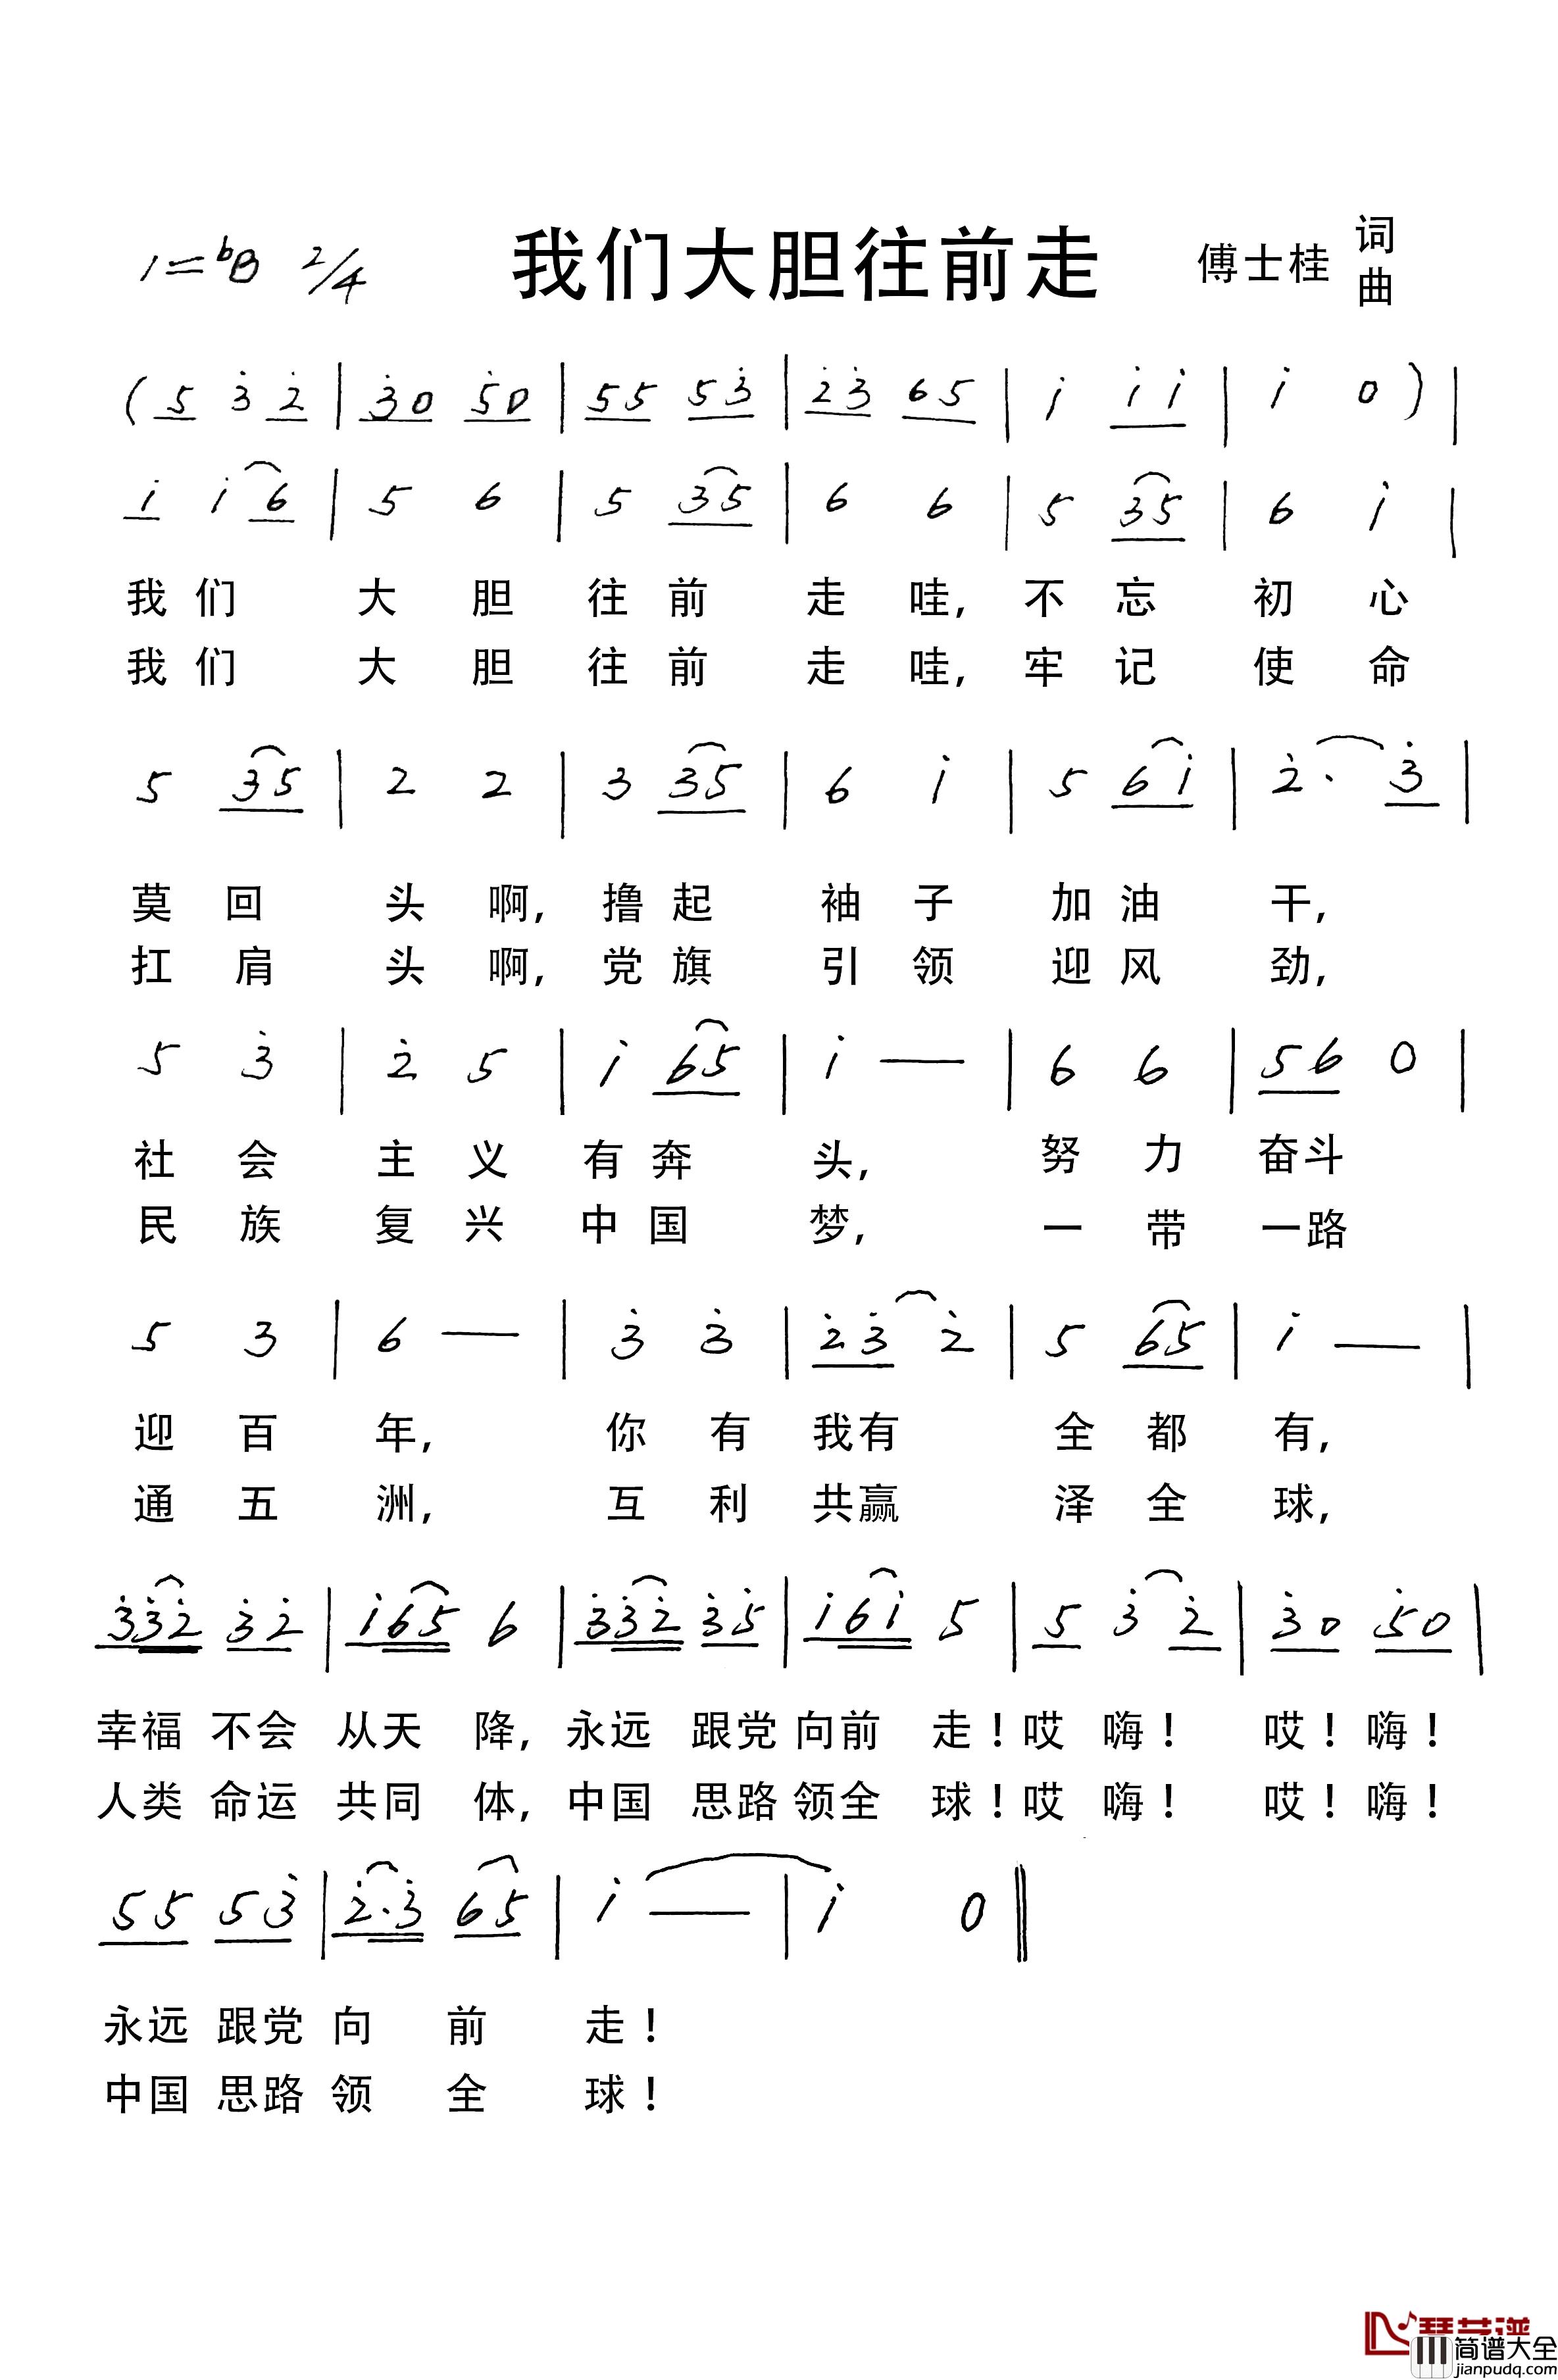 1=♭B 2/4 我们大胆往前走 傅士桂 词
曲
( 5 3̇ 2̇ | 3̇0 5̇0 | 55 53̇ | 2̇3̇ 65 | 1̇ 1̇1̇ | 1̇ 0 ) |
1̇ 1̇ 6 | 5 6 | 5 35 | 6 6 | 5 35 | 6 1̇ |
我们 大胆 往前 走哇, 不忘 初心
我们 大胆 往前 走哇, 牢记 使命
5 35 | 2 2 | 3 35 | 6 1̇ | 5 61̇ | 2̇· 3̇ |
莫回 头啊, 撸起 袖子 加油 干,
扛肩 头啊, 党旗 引领 迎风 劲,
5 3̇ | 2̇ 5 | 1̇ 65 | 1̇ — | 6 6 | 56 0 |
社会 主义 有奔 头, 努力 奋斗
民族 复兴 中国 梦, 一带 一路
5 3 | 6 — | 3̇ 3̇ | 2̇3̇ 2̇ | 5 65 | 1̇ — |
迎百 年, 你有 我有 全都 有,
通五 洲, 互利 共赢 泽全 球,
3̇3̇2̇ 3̇2̇ | 1̇65 6 | 3̇3̇2̇ 3̇5̇ | 1̇61̇ 5 | 5 3̇ 2̇ | 3̇0 5̇0 |
幸福 不会 从天 降, 永远 跟党 向前 走！哎 嗨！ 哎！嗨！
人类 命运 共同 体, 中国 思路 领全 球！哎 嗨！ 哎！嗨！
55 53̇ | 2̇·3̇ 65 | 1̇ — | 1̇ 0 ‖
永远 跟党 向 前 走！
中国 思路 领 全 球！
琴艺谱
简谱大全
jianpudq.com